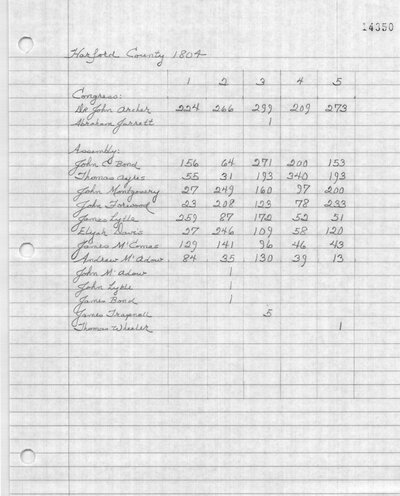 14350
Harford County 1804
1 2 3 4 5
Congress:
Dr John Archer 224 266 299 209 273
Abraham Jarrett 1
Assembly:
John C Bond 156 64 271 200 153
Thomas Ayres 55 31 193 340 193
John Montgomery 27 249 160 97 200
John Forwood 23 208 123 78 233
James Lytle 259 87 172 52 51
Elijah Davis 27 246 109 58 120
James McComas 129 141 96 46 43
Andrew McAdow 84 35 130 39 13
John McAdow 1
John Lytle 1
James Bond 1
James Trapnall 5
Thomas Wheeler 1